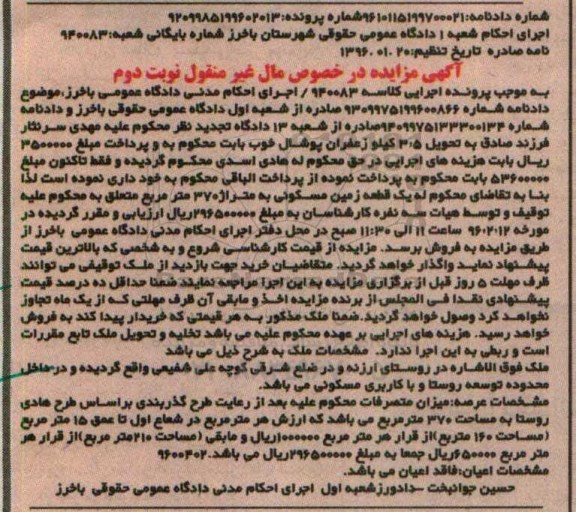 شماره دادنامه:۹۶۱۰۱۱۵۱۹۹۷۰۰۰۲۱شماره پرونده:۹۲۰۹۹۸۵۱۹۹۶۰۲۰۱۳
اجرای احکام شعبه ۱ دادگاه عمومی حقوقی شهرستان باخرز شماره بایگانی شعبه:۹۴۰۰۸۳
نامه صادره تاریخ تنظیم:۲۰ .۰۱ .۱۳۹۶
آگهی مزایده در خصوص مال غیر منقول نوبت دوم
به موجب پرونده اجرایی کلاسه ۹۴۰۰۸۳ / اجرای احکام مدنی دادگاه عمومی باخرز،موضوع
دادنامه شماره ۹۳۰۹۹۷۵۱۹۹۶۰۰۸۶۶ صادره از شعبه اول دادگاه عمومی حقوقی باخرز و دادنامه
شماره ۹۴۰۹۹۷۵۱۳۳۳۰۰۱۳۴صادره از شعبه ۱۳ دادگاه تجدید نظر محکوم علیه مهدی سرنثار
فرزند صادق به تحویل ۳،۵ کیلو زعفران پوشال خوب بابت محکوم به و پرداخت مبلغ ۳۵۰۰۰۰۰
ریال بابت هزینه های اجرایی در حق محکوم له هادی اسدی محکوم گردیده و فقط تاکنون مبلغ
۵۳۶۰۰۰۰۰ بابت محکوم به پرداخت نموده از پرداخت الباقی محکوم به خود داری نموده است لذا
بنا به تقاضای محکوم له یک قطعه زمین مسکونی به متراژ۳۷۰ متر مربع متعلق به محکوم علیه
توقیف و توسط هیات سه نفره کارشناسان به مبلغ ۲۹۶۵۰۰۰۰۰ریال ارزیابی و مقرر گردیده در
مورخه ۹۶،۰۲،۱۲ ساعت ۱۱ الی ۱۱:۳۰ صبح در محل دفتر اجرای احکام مدنی دادگاه عمومی باخرز از
طریق مزایده به فروش برسد. مزایده از قیمت کارشناسی شروع و به شخصی که بالاترین قیمت
پیشنهاد نماید واگذار خواهد گردید. متقاضیان خرید جهت بازدید از ملک توقیفی می توانند
ظرف مهلت ۵ روز قبل از برگزاری مزایده به این اجرا مراجعه نمایند ضمنا حداقل ده درصد قیمت
پیشنهادی نقدا فی المجلس از برنده مزایده اخذ و مابقی آن ظرف مهلتی که از یک ماه تجاوز
نخواهد کرد وصول خواهد گردید. ضمنا ملک مذکور به هر قیمتی که خریدار پیدا کند به فروش
خواهد رسید. هزینه های اجرایی بر عهده محکوم علیه می باشد تخلیه و تحویل ملک تابع مقررات
است و ربطی به این اجرا ندارد. مشخصات ملک به شرح ذیل می باشد
ملک فوق الاشاره در روستای ارزنه و در ضلع شرقی کوچه علی شفیعی واقع گردیده و در داخل
محدوده توسعه روستا و با کاربری مسکونی می باشد.
مشخصات عرصه:میزان متصرفات محکوم علیه بعد از رعایت طرح گذربندی براساس طرح هادی
روستا به مساحت ۳۷۰ مترمربع می باشد که ارزش هر مترمربع در شعاع اول تا عمق ۱۵ متر مربع
(مساحت ۱۶۰ متربع)از قرار هر متر مربع ۱۰۰۰۰۰۰ریال و مابقی (مساحت ۲۱۰متر مربع)از قرار هر
متر مربع ۶۵۰۰۰۰ریال جمعا به مبلغ ۲۹۶۵۰۰۰۰۰ریال می باشد.۹۶۰۰۴۰۲
مشخصات اعیان:فاقد اعیان می باشد.
حسین جوانبخت –دادورزشعبه اول اجرای احکام مدنی دادگاه عمومی حقوقی باخرز